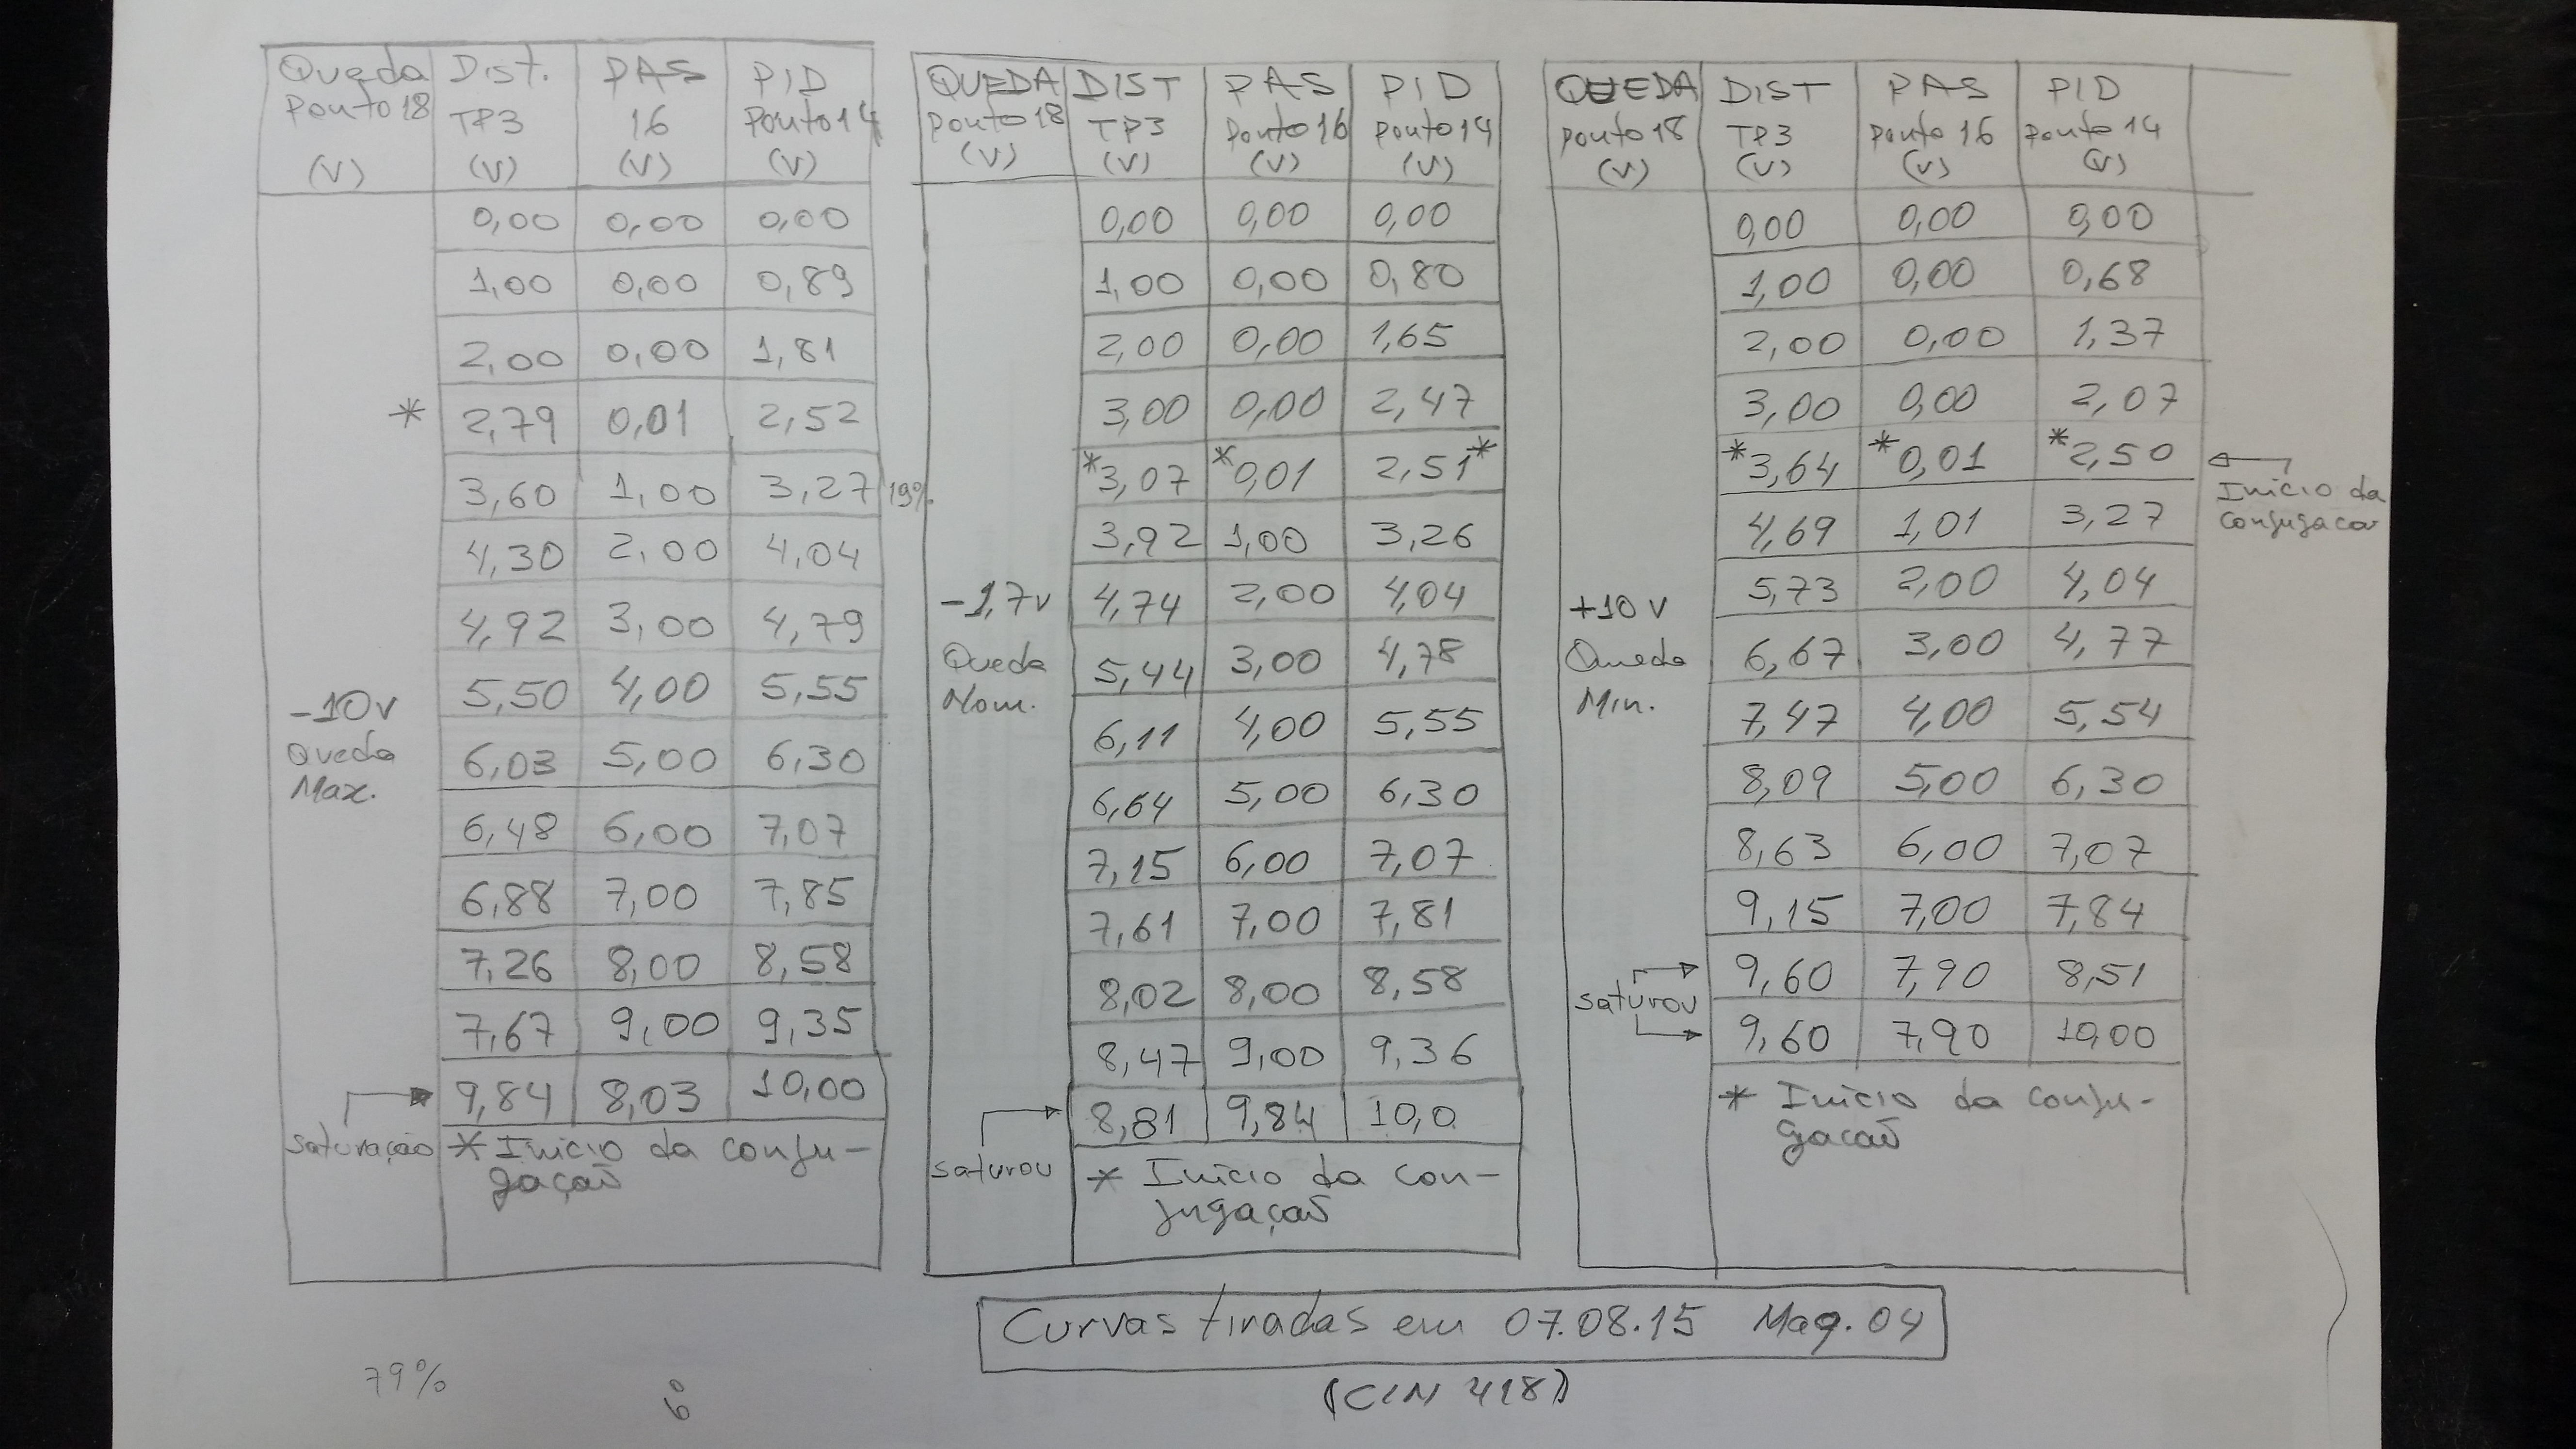 Queda Ponto 18 (V) | Dist. TP3 (V) | PAS 16 (V) | PID Ponto 14 (V)
0,00 | 0,00 | 0,00
1,00 | 0,00 | 0,89
2,00 | 0,00 | 1,81
* 2,79 | 0,01 | 2,52
3,60 | 1,00 | 3,27 19%
4,30 | 2,00 | 4,04
4,92 | 3,00 | 4,79
-10V Queda Max.
5,50 | 4,00 | 5,55
6,03 | 5,00 | 6,30
6,48 | 6,00 | 7,07
6,88 | 7,00 | 7,85
7,26 | 8,00 | 8,58
7,67 | 9,00 | 9,35
saturação 9,84 | 8,03 | 10,00
* Inicio da conju-
gação
QUEDA Ponto 18 (V) | DIST TP3 (V) | PAS Ponto 16 (V) | PID Ponto 14 (V)
0,00 | 0,00 | 0,00
1,00 | 0,00 | 0,80
2,00 | 0,00 | 1,65
3,00 | 0,00 | 2,47
*3,07 | *0,01 | 2,51*
3,92 | 1,00 | 3,26
-1,7V Queda Nom.
4,74 | 2,00 | 4,04
5,44 | 3,00 | 4,78
6,11 | 4,00 | 5,55
6,64 | 5,00 | 6,30
7,15 | 6,00 | 7,07
7,61 | 7,00 | 7,81
8,02 | 8,00 | 8,58
8,47 | 9,00 | 9,36
saturou 8,81 | 9,84 | 10,0
* Inicio da con-
jugação
QUEDA Ponto 18 (V) | DIST TP3 (V) | PAS Ponto 16 (V) | PID Ponto 14 (V)
0,00 | 0,00 | 0,00
1,00 | 0,00 | 0,68
2,00 | 0,00 | 1,37
3,00 | 0,00 | 2,07
*3,64 | *0,01 | *2,50
Inicio da
conjugacao
4,69 | 1,01 | 3,27
+10V Queda Min.
5,73 | 2,00 | 4,04
6,67 | 3,00 | 4,77
7,47 | 4,00 | 5,54
8,09 | 5,00 | 6,30
8,63 | 6,00 | 7,07
9,15 | 7,00 | 7,84
saturou 9,60 | 7,90 | 8,51
9,60 | 7,90 | 10,00
* Inicio da conju-
gação
Curvas tiradas em 07.08.15 Maq. 04
(CIN 418)
79%